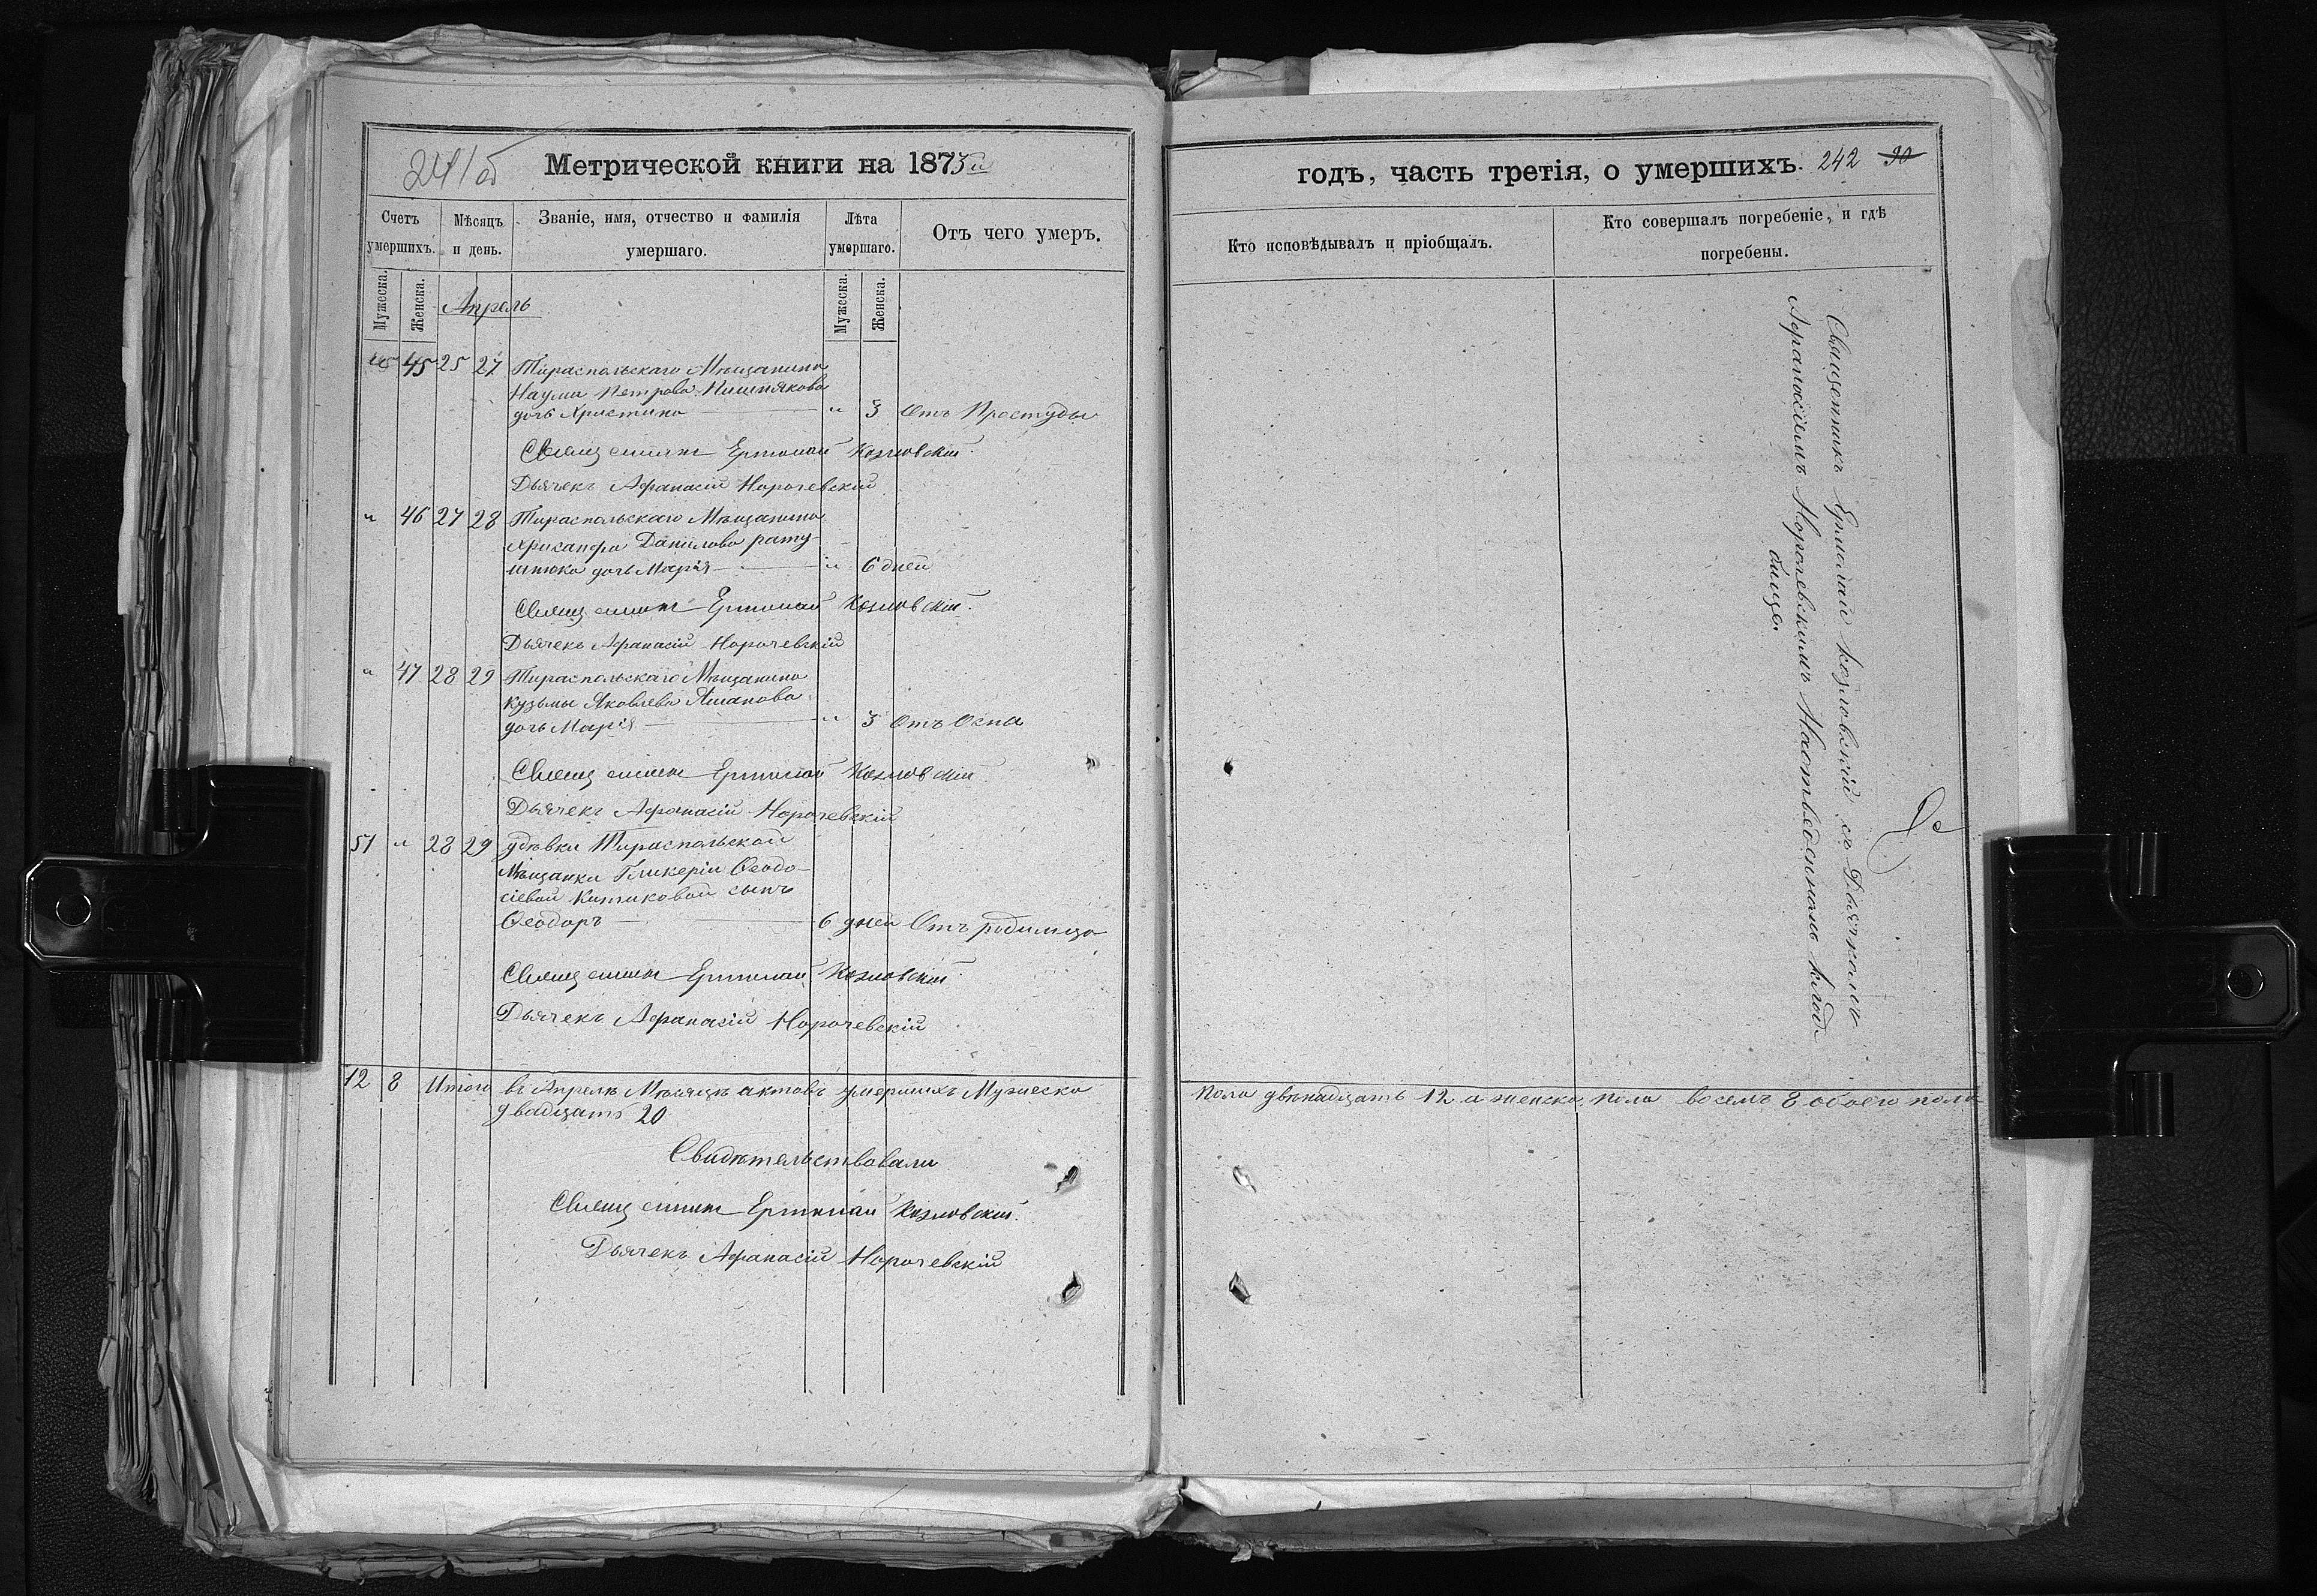 241об
Метрической книги на 1873й
Счетъ умершихъ.
Мѣсяцъ и день.
Званіе, имя, отчество и фамилія умершаго.
Лѣта умершаго.
Отъ чего умеръ.
Мужеска.
Женска.
Мужеска.
Женска.
Апрель
45 25 27 Тираспольскаго Мѣщанина
Наума Петрова
дочь Христина " 3 Отъ Простуды
Священникъ Ермолай Козловскій.
Дьячекъ Афанасій Норочевскій
" 46 27 28 Тираспольскаго Мѣщанина
Хрисанфа Данилова рату-
шнюка дочь Марія " 6 дней
Священникъ Ермолай Козловскій.
Дьячекъ Афанасій Норочевскій
" 47 28 29 Тираспольскаго Мѣщанина
Кузьмы Яковлева
дочь Марія " 3 Отъ Оспы
Священникъ Ермолай Козловскій.
Дьячекъ Афанасій Норочевскій
51 " 28 29 удовки Тираспольской
Мѣщанки Гликеріи Ѳеодо-
сіевой сынъ
Ѳеодоръ 6 дней Отъ родимца
Священникъ Ермолай Козловскій.
Дьячекъ Афанасій Норочевскій
12 8 Итого въ Апрелѣ Мѣсяцѣ актовъ умершихъ Мужеска
двадцать 20
Свидѣтельствовали
Священникъ Ермолай Козловскій.
Дьячекъ Афанасій Норочевскій
годъ, часть третія, о умершихъ. 242 30
Кто исповѣдывалъ и пріобщалъ.
Кто совершалъ погребеніе, и гдѣ погребены.
Священникъ Ермолай Козловскій съ Дьячкомъ
Афанасіемъ Норочевскимъ На отведенномъ клад
бище.
пола двѣнадцать 12 а женска пола восемъ 8 обоего пола